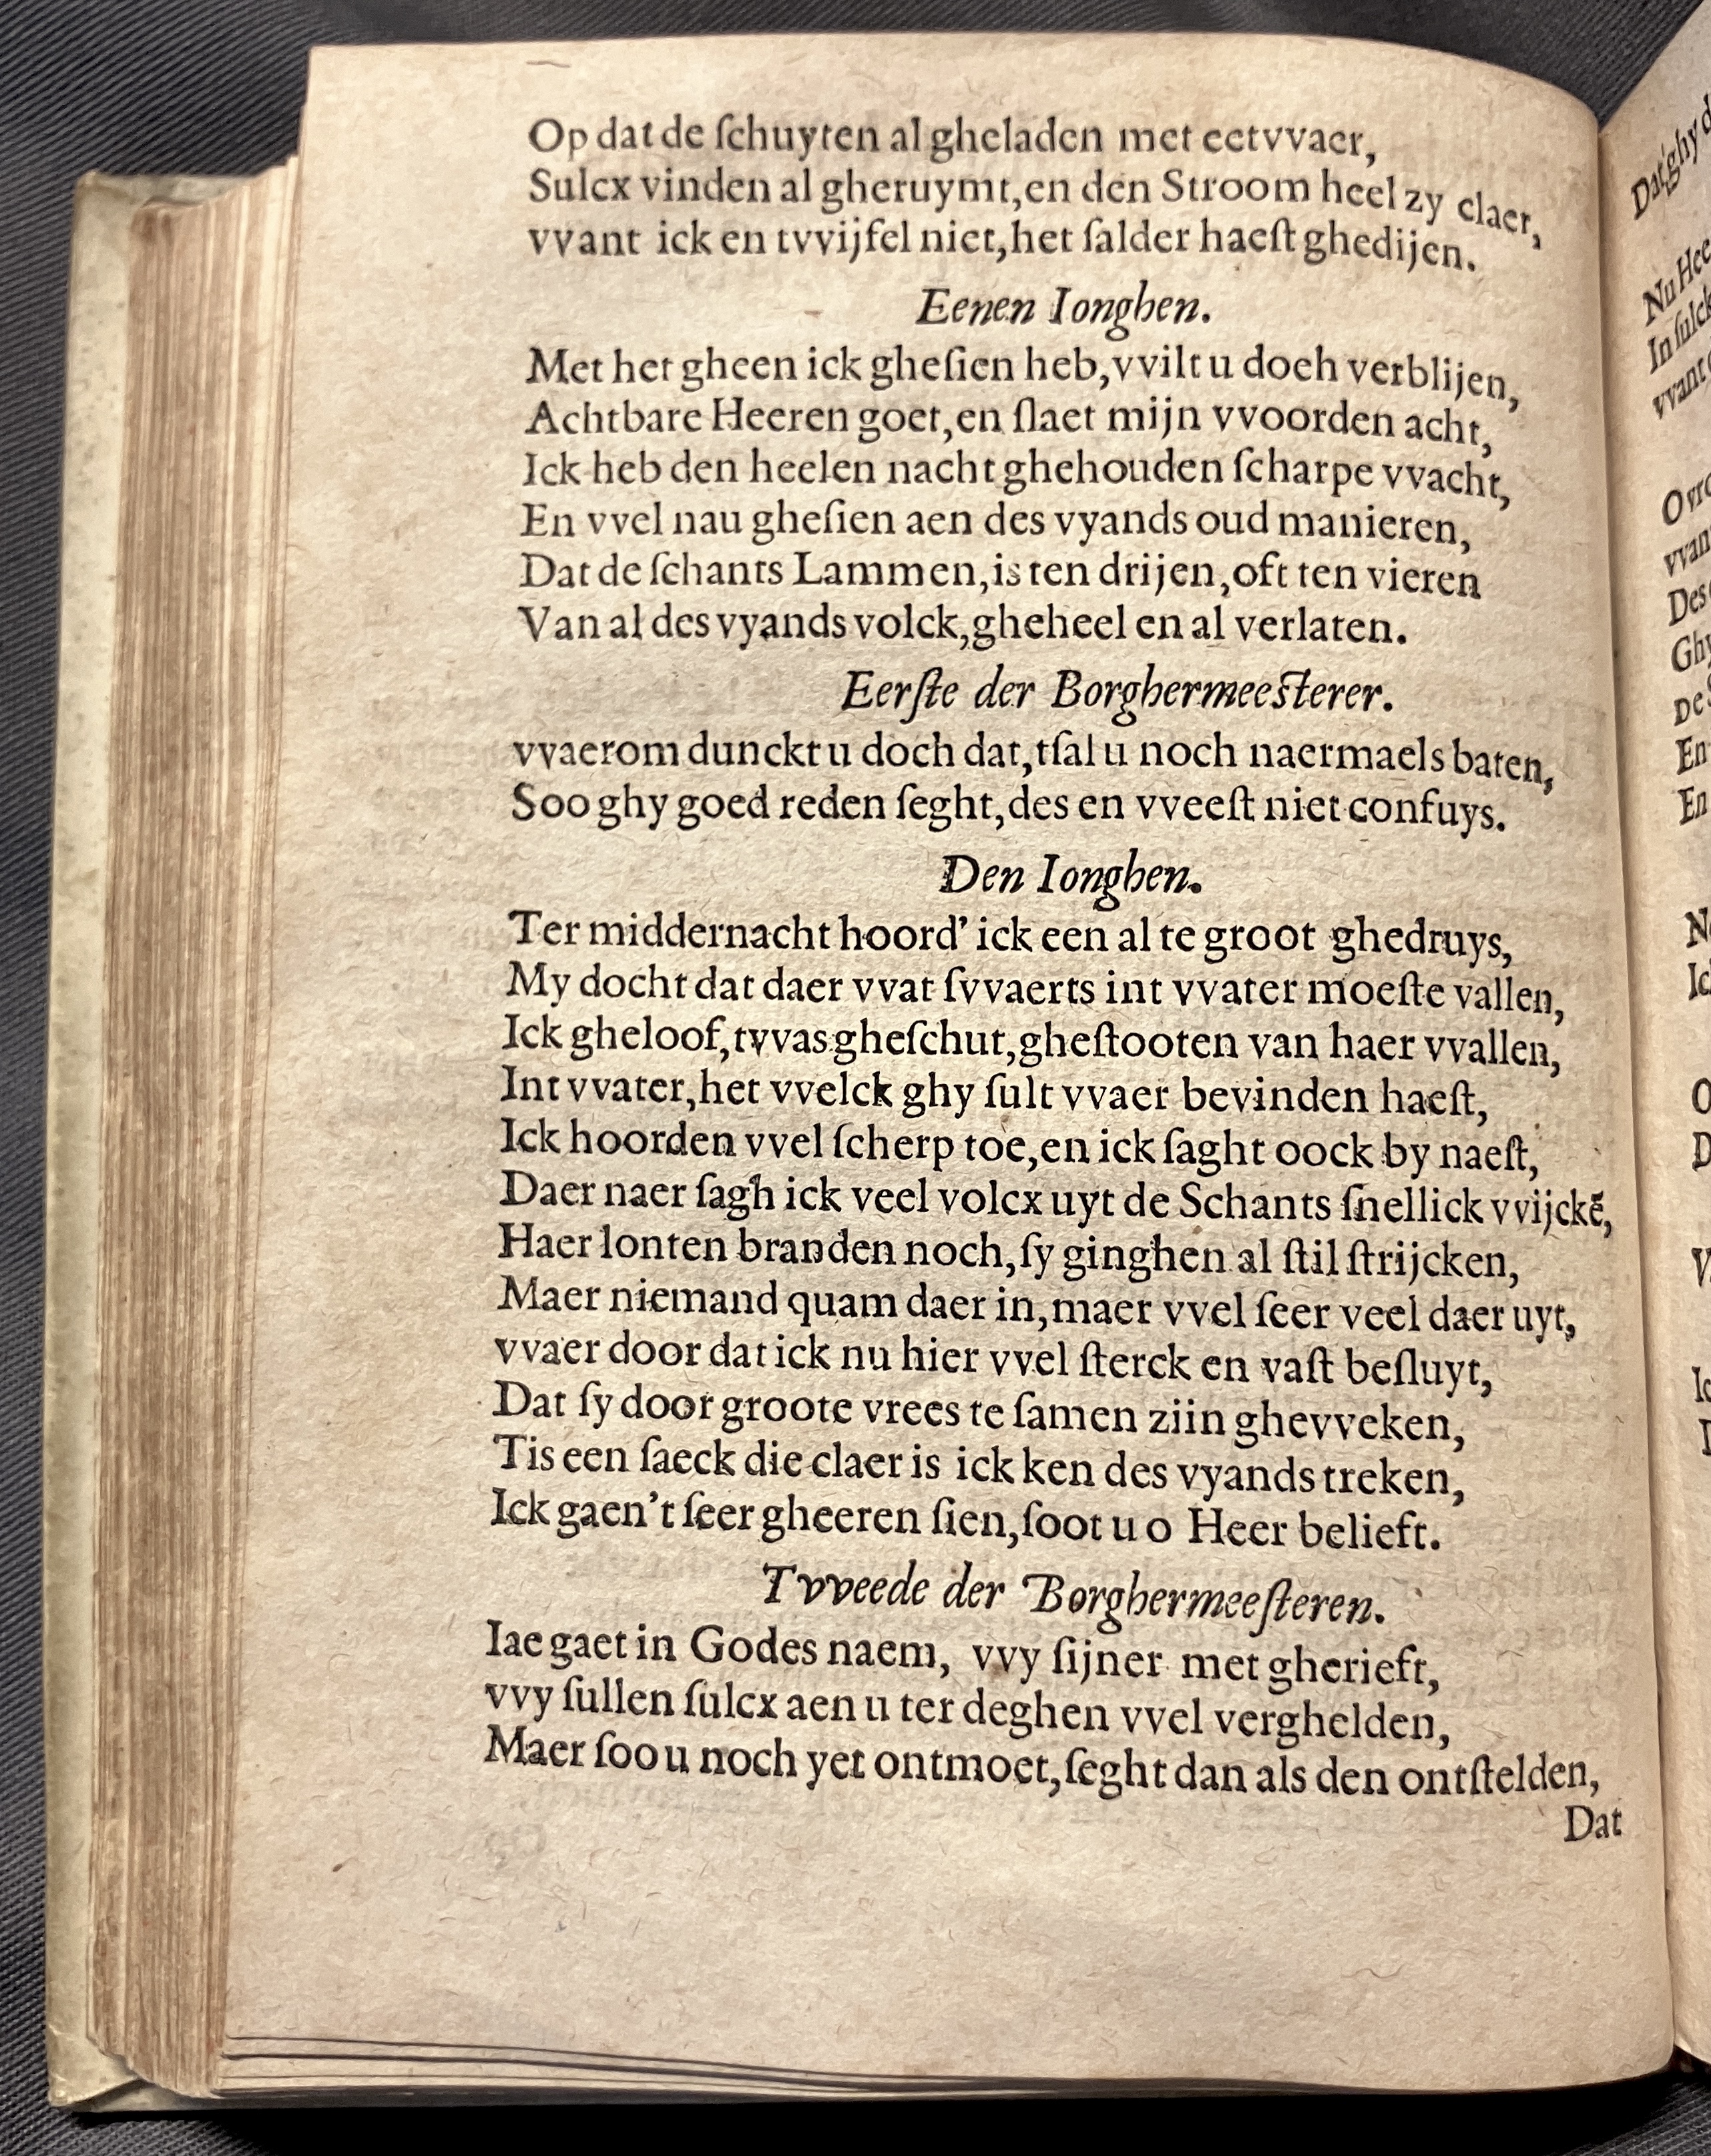 Op dat de ſchuyten al gheladen met eetvvaer,
Sulcx vinden al gheruymt, en den Stroom heel zy claer,
vvant ick en tvvijfel niet, het ſalder haeſt ghedijen.
Eenen Ionghen.
Met het gheen ick gheſien heb, vvilt u doeh verblijen,
Achtbare Heeren goet, en ſlaet mijn vvoorden acht,
Ick heb den heelen nacht ghehouden ſcharpe vvacht,
En vvel nau gheſien aen des vyands oud manieren,
Dat de ſchants Lammen, is ten drijen, oft ten vieren
Van al des vyands volck, gheheel en al verlaten.
Eerſte der Borghermeeſterer.
vvaerom dunckt u doch dat, tſal u noch naermaels baten,
Soo ghy goed reden ſeght, des en vveeſt niet confuys.
Den Ionghen.
Ter middernacht hoord' ick een al te groot ghedruys,
My docht dat daer vvat ſvvaerts int vvater moeſte vallen,
Ick gheloof, tvvas gheſchut, gheſtooten van haer vvallen,
Int vvater, het vvelck ghy ſult vvaer bevinden haeſt,
Ick hoorden vvel ſcherp toe, en ick ſaght oock by naeſt,
Daer naer ſagh ick veel volcx uyt de Schants ſnellick vvijckē,
Haer lonten branden noch, ſy ginghen al ſtil ſtrijcken,
Maer niemand quam daer in, maer vvel ſeer veel daer uyt,
vvaer door dat ick nu hier vvel ſterck en vaſt beſluyt,
Dat ſy door groote vrees te ſamen ziin ghevveken,
Tis een ſaeck die claer is ick ken des vyands treken,
Ick gaen't ſeer gheeren ſien, ſoot u o Heer belieft.
Tvveede der Borghermeeſteren.
Iae gaet in Godes naem, vvy ſijner met gherieft,
vvy ſullen ſulcx aen u ter deghen vvel verghelden,
Maer ſoo u noch yet ontmoet, ſeght dan als den ontſtelden,
Dat